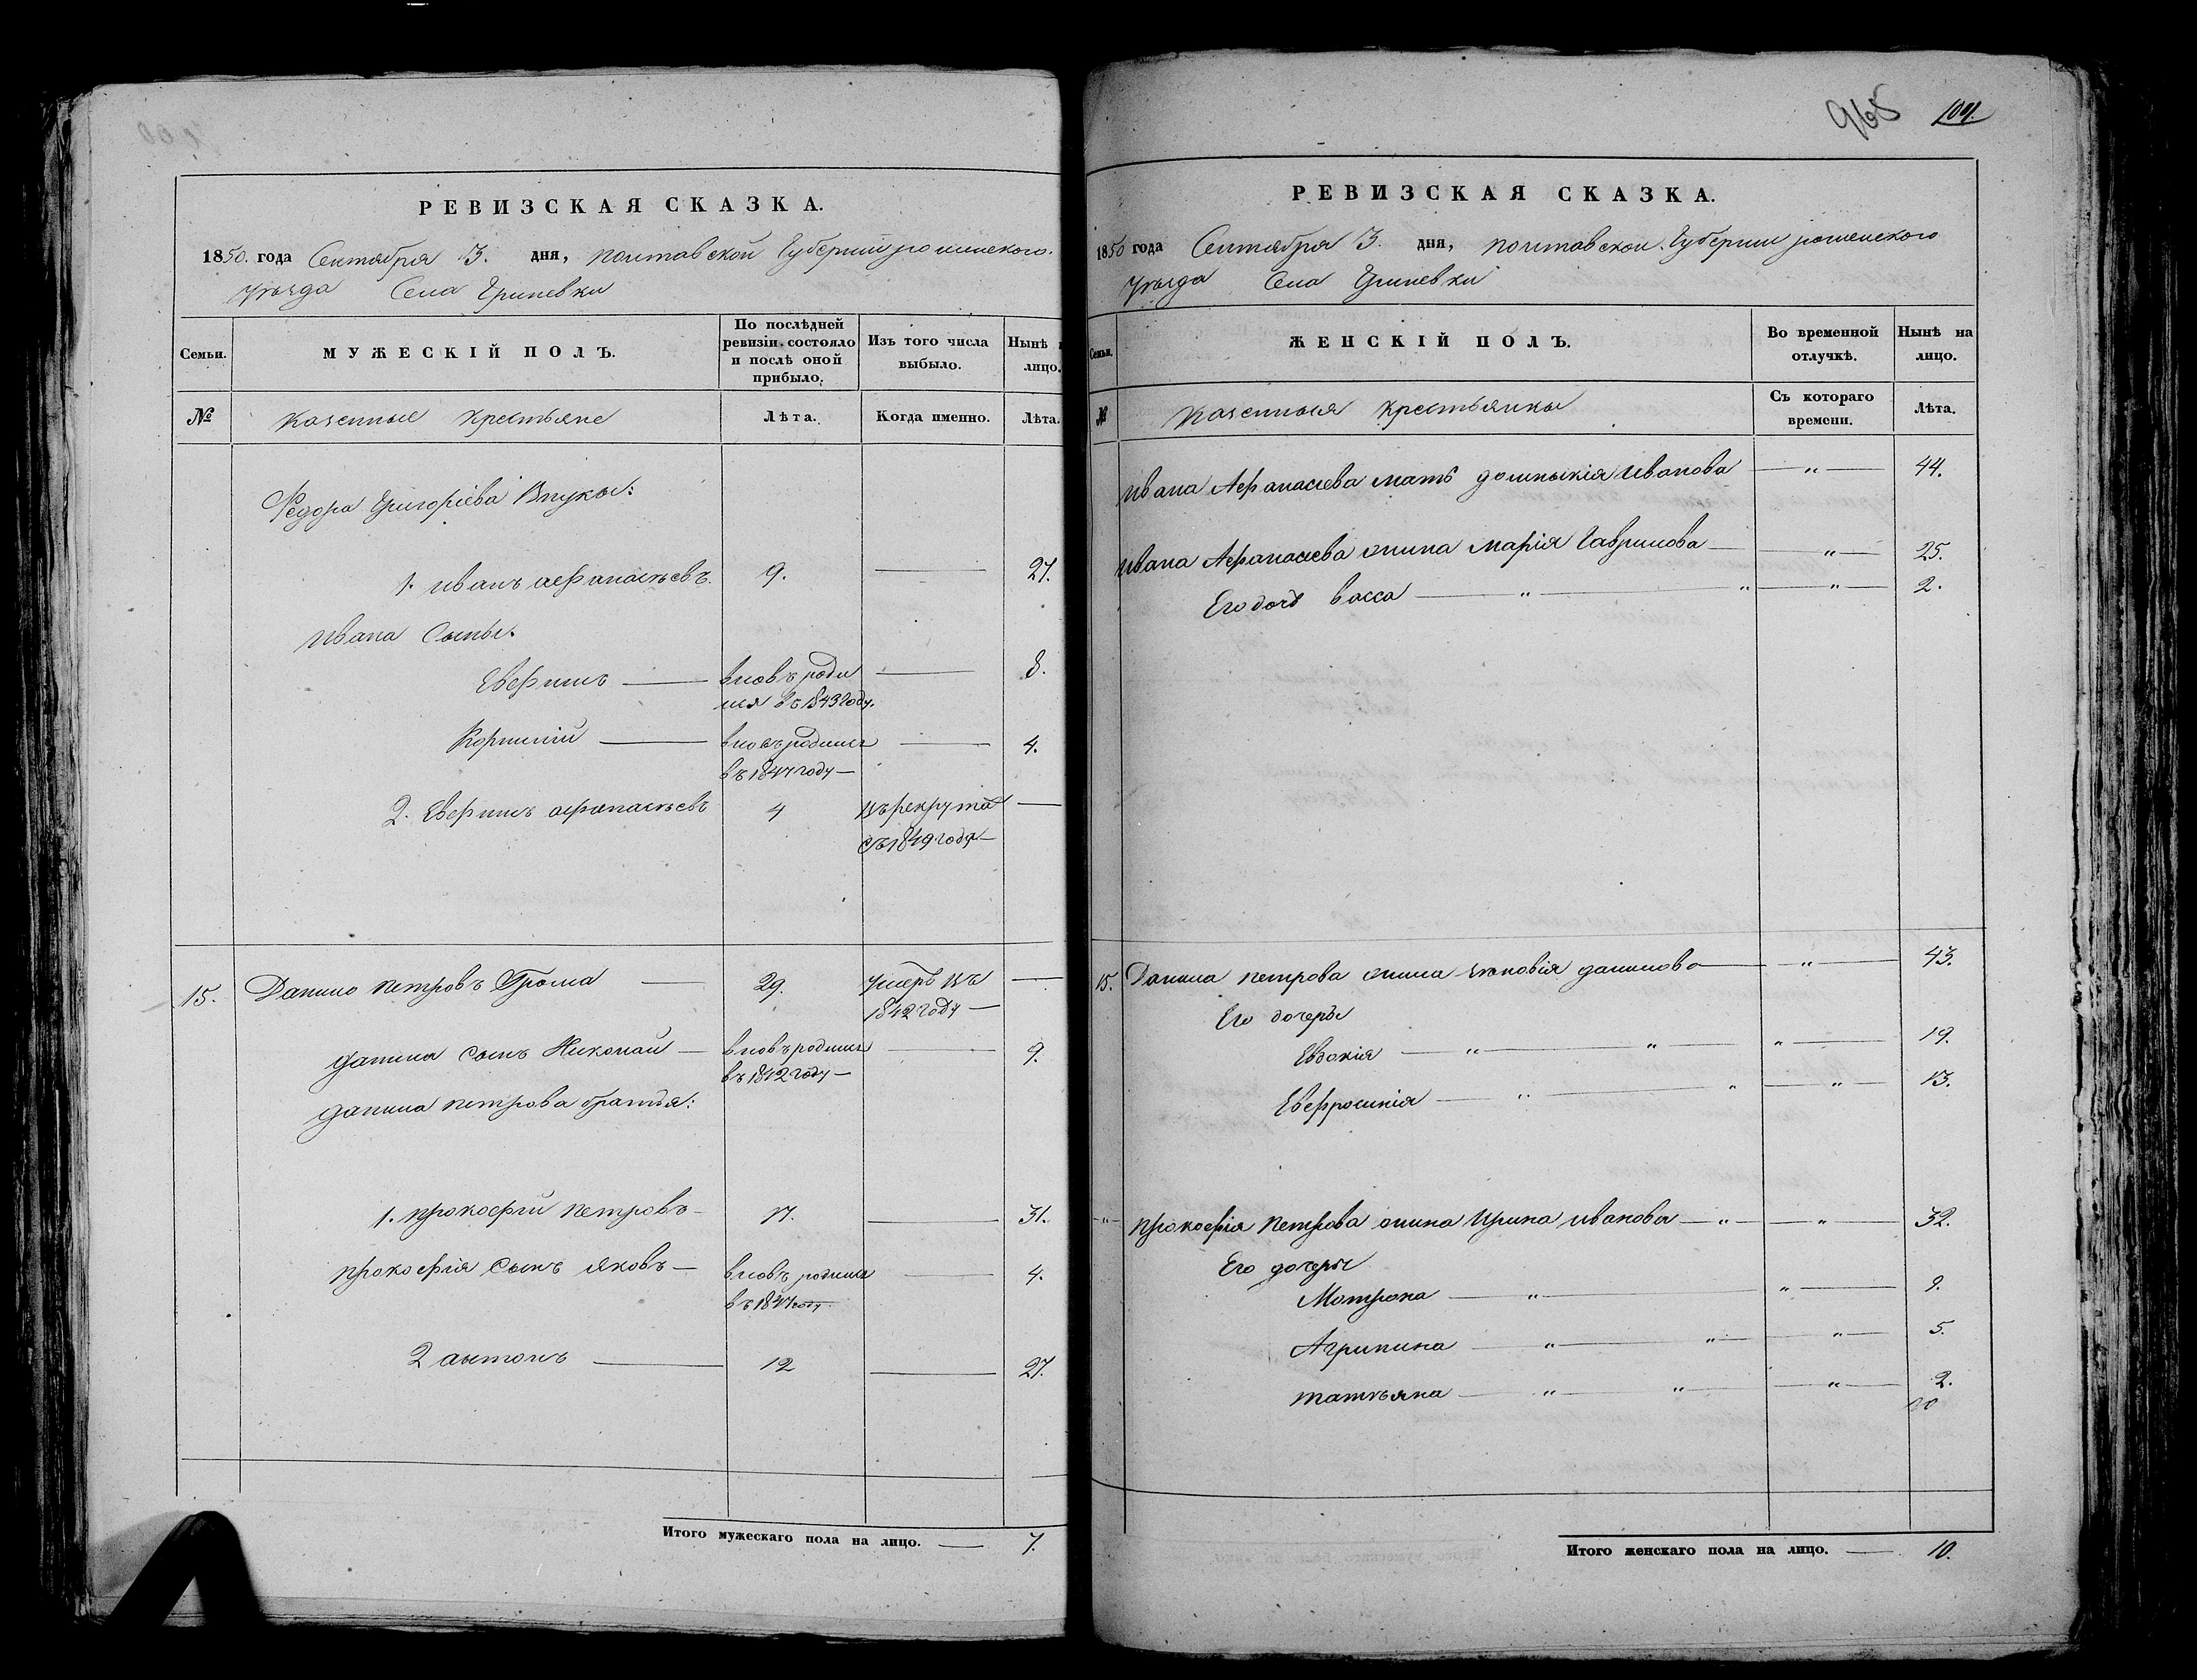 РЕВИЗСКАЯ СКАЗКА.
1850. года Сентября 3. дня, полтавской Губерніи роменского
уѣзда Села Гриневки
Семьи.
МУЖЕСКІЙ ПОЛЪ.
По послѣдней ревизіи состояло и послѣ оной прибыло.
Изъ того числа выбыло.
Нынѣ
лицо.
№
Казенные крестьяне
Лѣта.
Когда именно.
Лѣта.
Федора Григоріева Внуки:
1. иванъ афанасьевъ. 9. — 27.
ивана Сыны.
Евфимъ — вновь роди — 8.
лся въ 1843 году.
Корнилій — вновь родился — 4.
въ 1847 году —
2. Евфимъ афанасьевъ 4 въ рекрута —
съ 1849 года —
15. Данило петровъ 29. умеръ въ —
1842 году —
данила сынъ Николай — вновь родился — 9.
въ 1842 году —
данила петрова братья:
1. прокофій петровъ — 17. — 31.
прокофія сынъ яковъ — вновь родился — 4.
въ 1847 году
2 антонъ — 12 — 27.
Итого мужескаго пола на лицо. — 7.
965 1091.
РЕВИЗСКАЯ СКАЗКА.
1850 года Сентября 3. дня, полтавской Губерніи роменского
уѣзда Села Гриневки
Семьи.
ЖЕНСКІЙ ПОЛЪ.
Во временной отлучкѣ.
Нынѣ на лицо.
№
Казенныя крестьянки
Съ котораго времени.
Лѣта.
ивана Афанасіева мать домникія иванова — " — 44.
ивана Афанасіева жина марія гаврилова — " — 25.
Его дочь васса — " — " — " — 2.
15. Данила петрова жина данилова — " — 43.
Его дочеры
Евдокія — " — " — " — 19.
Евфросинія — " — " — " — 13.
" прокофія петрова жина Ирина иванова — " — " — 32.
Его дочеры
Мотрона — " — " — 9.
Агрипина — " — " — " — 5.
татьяна — " — " — " — 2.
Итого женскаго пола на лицо. — 10.